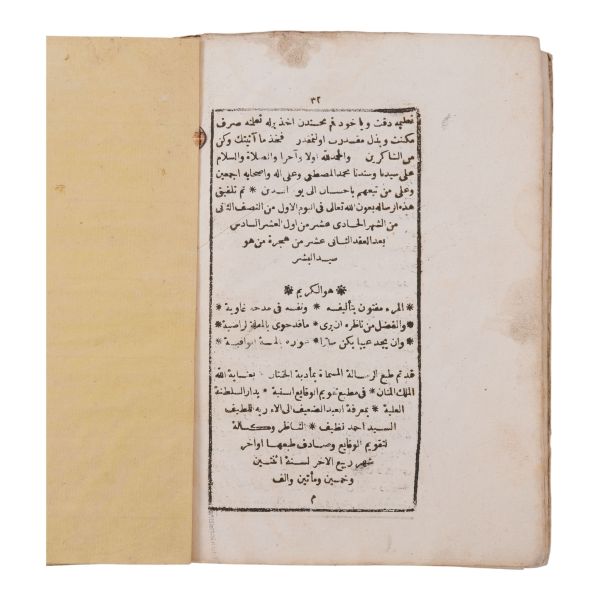 ٣٢
تعليمه دقت وياخود فم محسندن اخذيله تعلمنه صرف
مكنت وبذل مقدرت اولنمقدر فخذ ما آتيتك وكن
من الشاكرين والحمد لله اولا وآخرا والصلاة والسلام
على سيدنا وسندنا محمد المصطفى وعلى اله واصحابه اجمعين
وعلى من تبعهم باحسان الى يوم الدين * تم تلفيق
هذه الرساله بعون الله تعالى فى اليوم الاول من النصف الثانى
من الشهر الحادى عشر من اول العشر السادس
بعد العقد الثانى عشر من هجرة من هو
سيد البشر
* هو الكريم *
* المرء مفتون بتأليفه * ونفسه فى مدحه غاوية *
* والفضل من ناظره ان يرى * ما قد حوى بالمقلة الراضية *
* وان يجد عيبا يكن ساترا * عوره بالمنة الوافية *
قد تم طبع الرسالة المسماة بمأدبة الختان بعناية الله
الملك المنان * فى مطبع تقويم الوقايع السنية * بدار السلطنة
العلية * بمعرفة العبد الضعيف الى الاء ربه اللطيف
السيد احمد نظيف * الناظر وكالة
لتقويم الوقايع وصادف طبعها اواخر
شهر ربيع الاخر لسنة اثنتين
وخمسين ومأتين والف
م